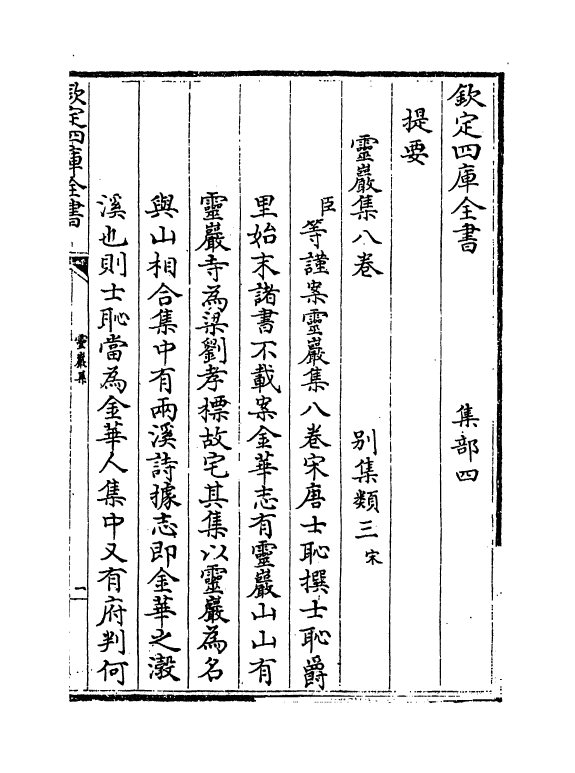 欽定四庫全書　集部四
提要
靈巖集八卷　别集類三 宋
臣等謹案靈巖集八卷宋唐士恥撰士恥爵
里始末諸書不載案金華志有靈巖山山有
靈巖寺為梁劉孝標故宅其集以靈巖為名
與山相合集中有兩溪詩據志即金華之瀫
溪也則士恥當為金華人集中又有府判何
欽定四庫全書
靈巖集
一